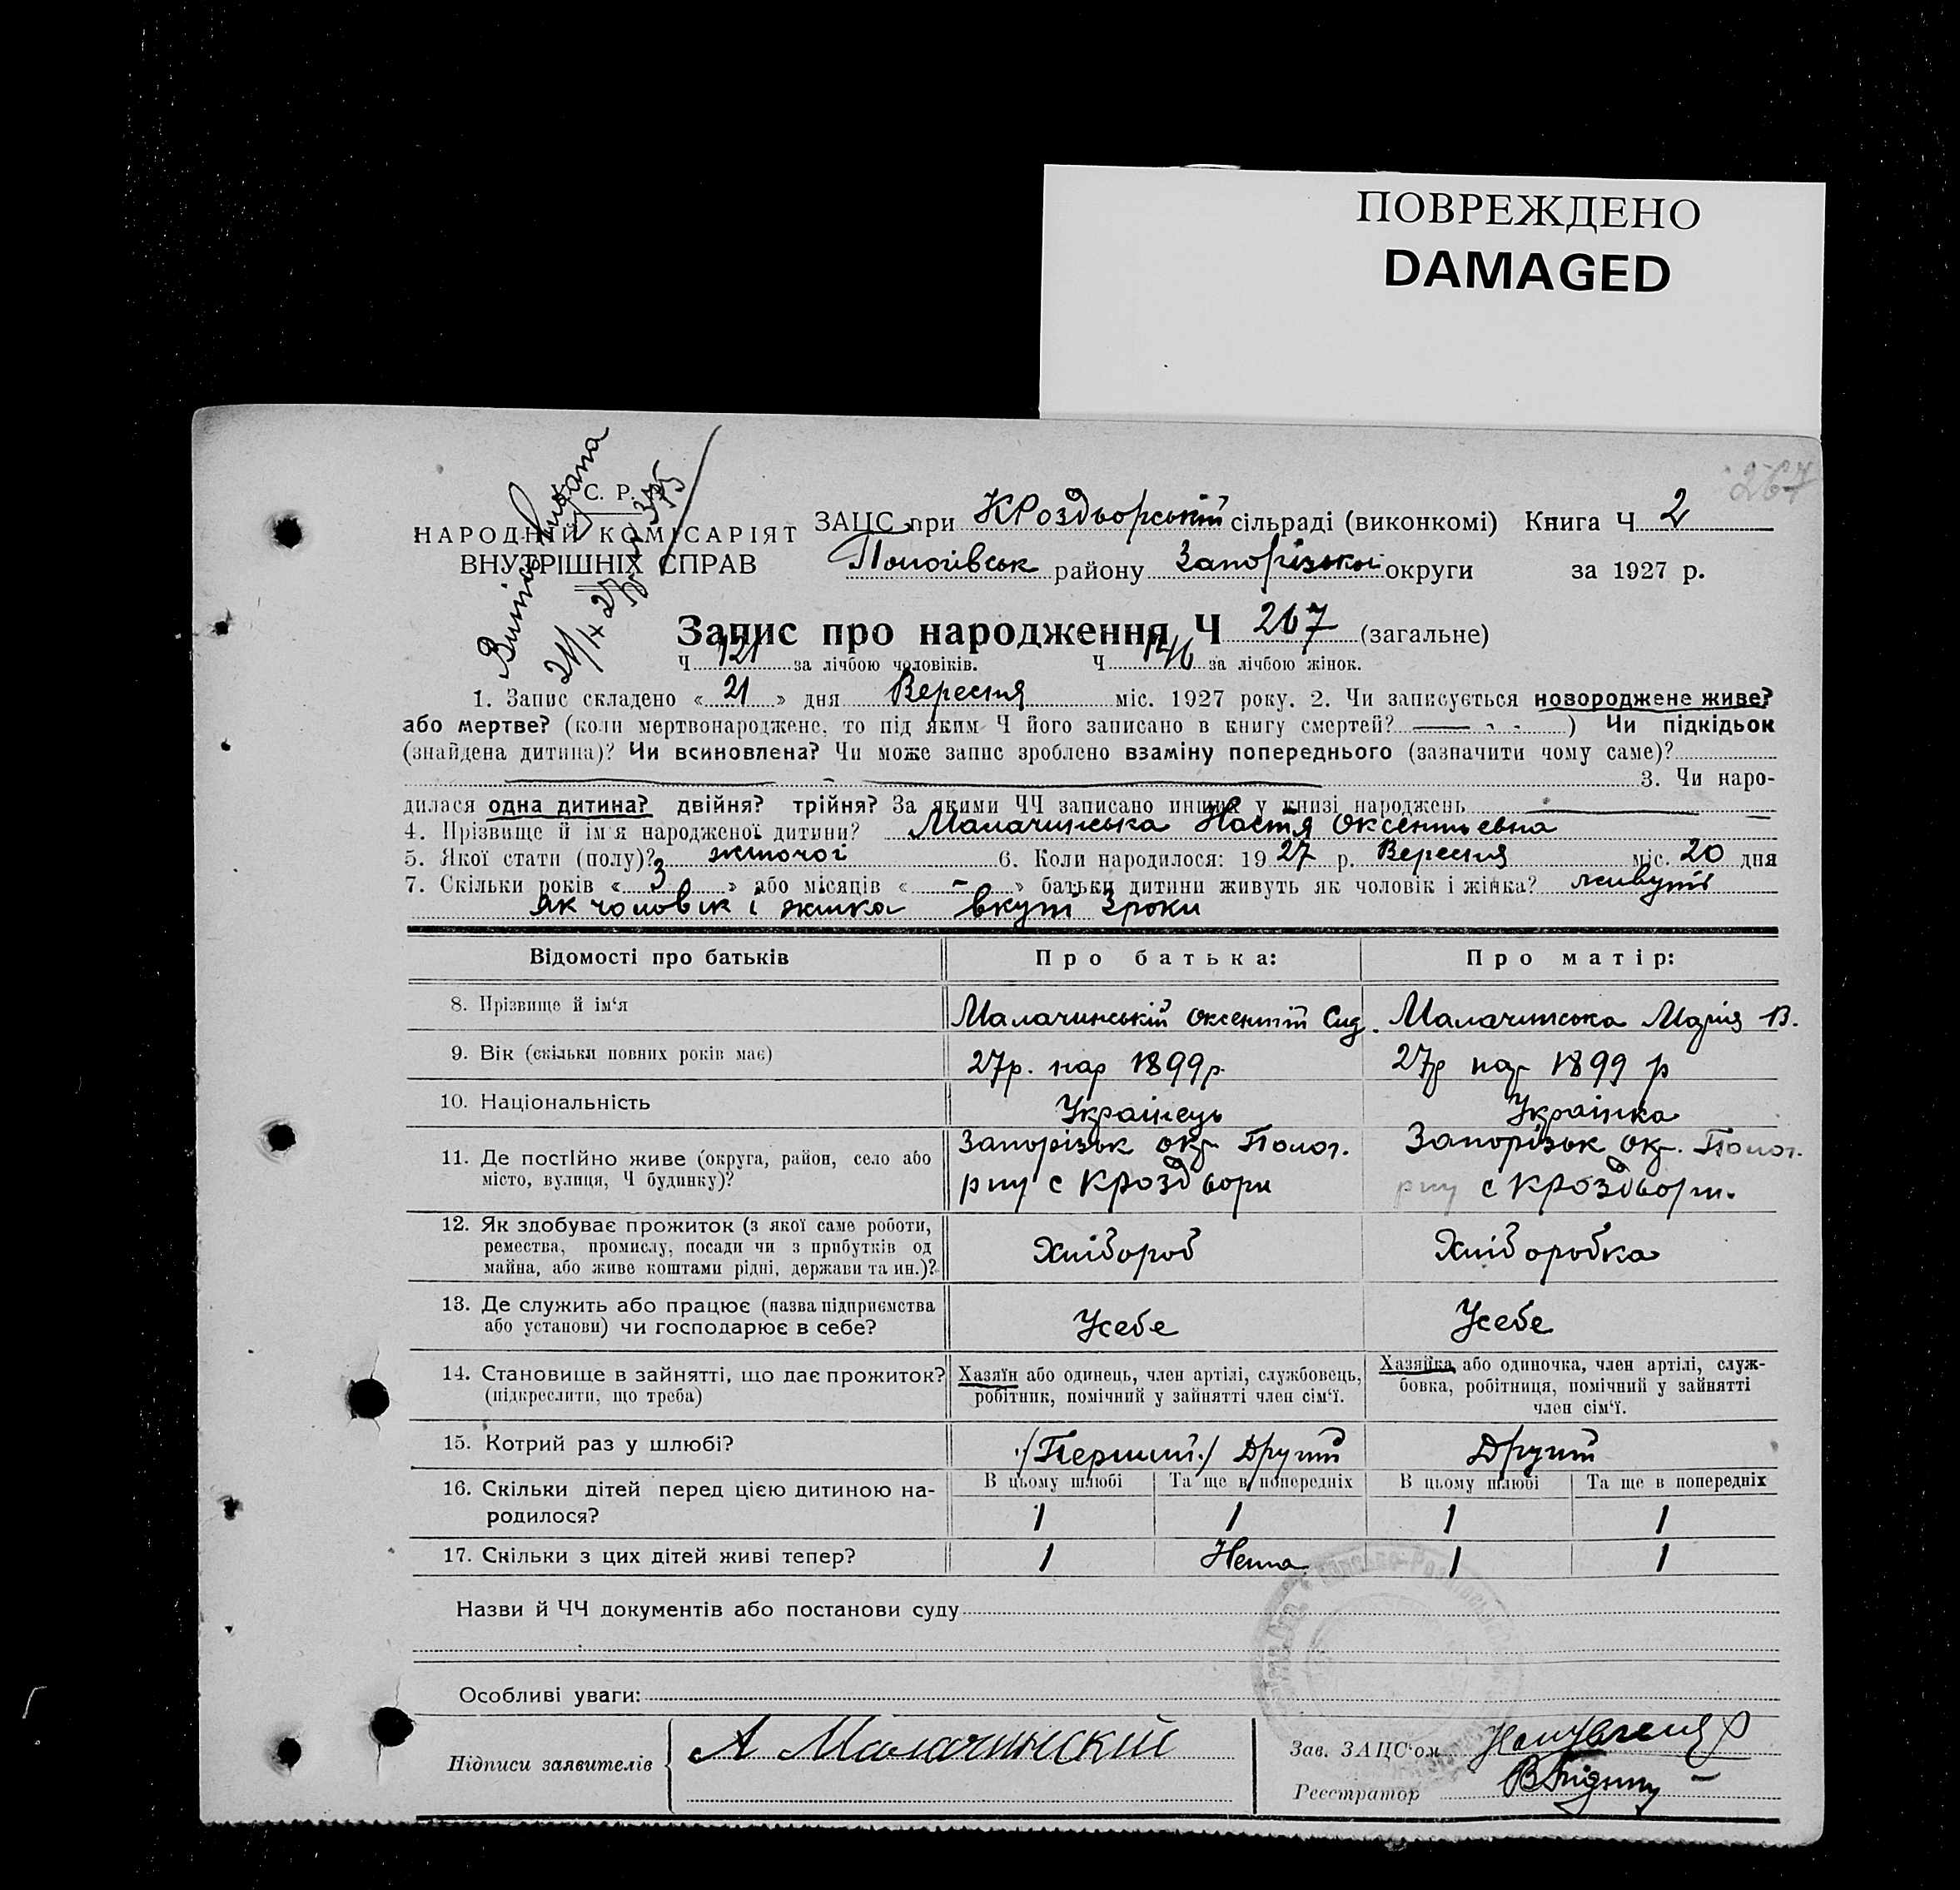 ПОВРЕЖДЕНО
DAMAGED
267
С. Р.
НАРОДНІЙ КОМІСАРІЯТ
ВНУТРІШНІХ СПРАВ
ЗАЦС при КРоздворський сільраді (виконкомі) Книга Ч 2
Пологівськ району Запорізької округи за 1927 р.
Запис про народження Ч 267 (загальне)
Ч 121 за лічбою чоловіків. Ч 146 за лічбою жінок.
1. Запис складено « 21 » дня Вересня міс. 1927 року. 2. Чи записується новороджене живе?
або мертве? (коли мертвонароджене, то під яким Ч його записано в книгу смертей? ) Чи підкідьок
(знайдена дитина)? Чи всиновлена? Чи може запис зроблено взаміну попереднього (зазначити чому саме)?
3. Чи наро-
дилася одна дитина? двійня? трійня? За якими ЧЧ записано инших у книзі народжень
4. Прізвище й ім'я народженої дитини? Малачинська Настя Оксентьевна
5. Якої стати (полу)? жіночої 6. Коли народилося: 1927 р. Вересня міс. 20 дня
7. Скільки років « 3 » або місяців « - » батьки дитини живуть як чоловік і жінка? живуть
як чоловік і жінка вкупі 3 роки
Відомості про батьків Про батька: Про матір:
8. Прізвище й ім'я Малачинській Оксентій Сид. Малачинська Марія В.
9. Вік (скільки повних років має) 27р. нар 1899р. 27р нар 1899 р
10. Національність Українець Українка
11. Де постійно живе (округа, район, село або
місто, вулиця, Ч будинку)?
Запорізьк окр Полог.
рну с КРоздвори
Запорізьк ок. Полог.
рну с КРоздвори.
12. Як здобуває прожиток (з якої саме роботи,
ремества, промислу, посади чи з прибутків од
майна, або живе коштами рідні, держави та ин.)?
Хлібороб Хліборобка
13. Де служить або працює (назва підприємства
або установи) чи господарює в себе?
Усебе Усебе
14. Становище в зайнятті, що дає прожиток?
(підкреслити, що треба)
Хазяїн або одинець, член артілі, службовець,
робітник, помічний у зайнятті член сім'ї.
Хазяйка або одиночка, член артілі, служ-
бовка, робітниця, помічний у зайнятті
член сім'ї.
15. Котрий раз у шлюбі? /Перший/ Другий Другий
16. Скільки дітей перед цією дитиною на-
родилося?
В цьому шлюбі Та ще в попередніх В цьому шлюбі Та ще в попередніх
1 1 1 1
17. Скільки з цих дітей живі тепер? 1 Нема 1 1
Назви й ЧЧ документів або постанови суду
Особливі уваги:
Підписи заявителів А Малачинский
Зав. ЗАЦС'ом
Реєстратор